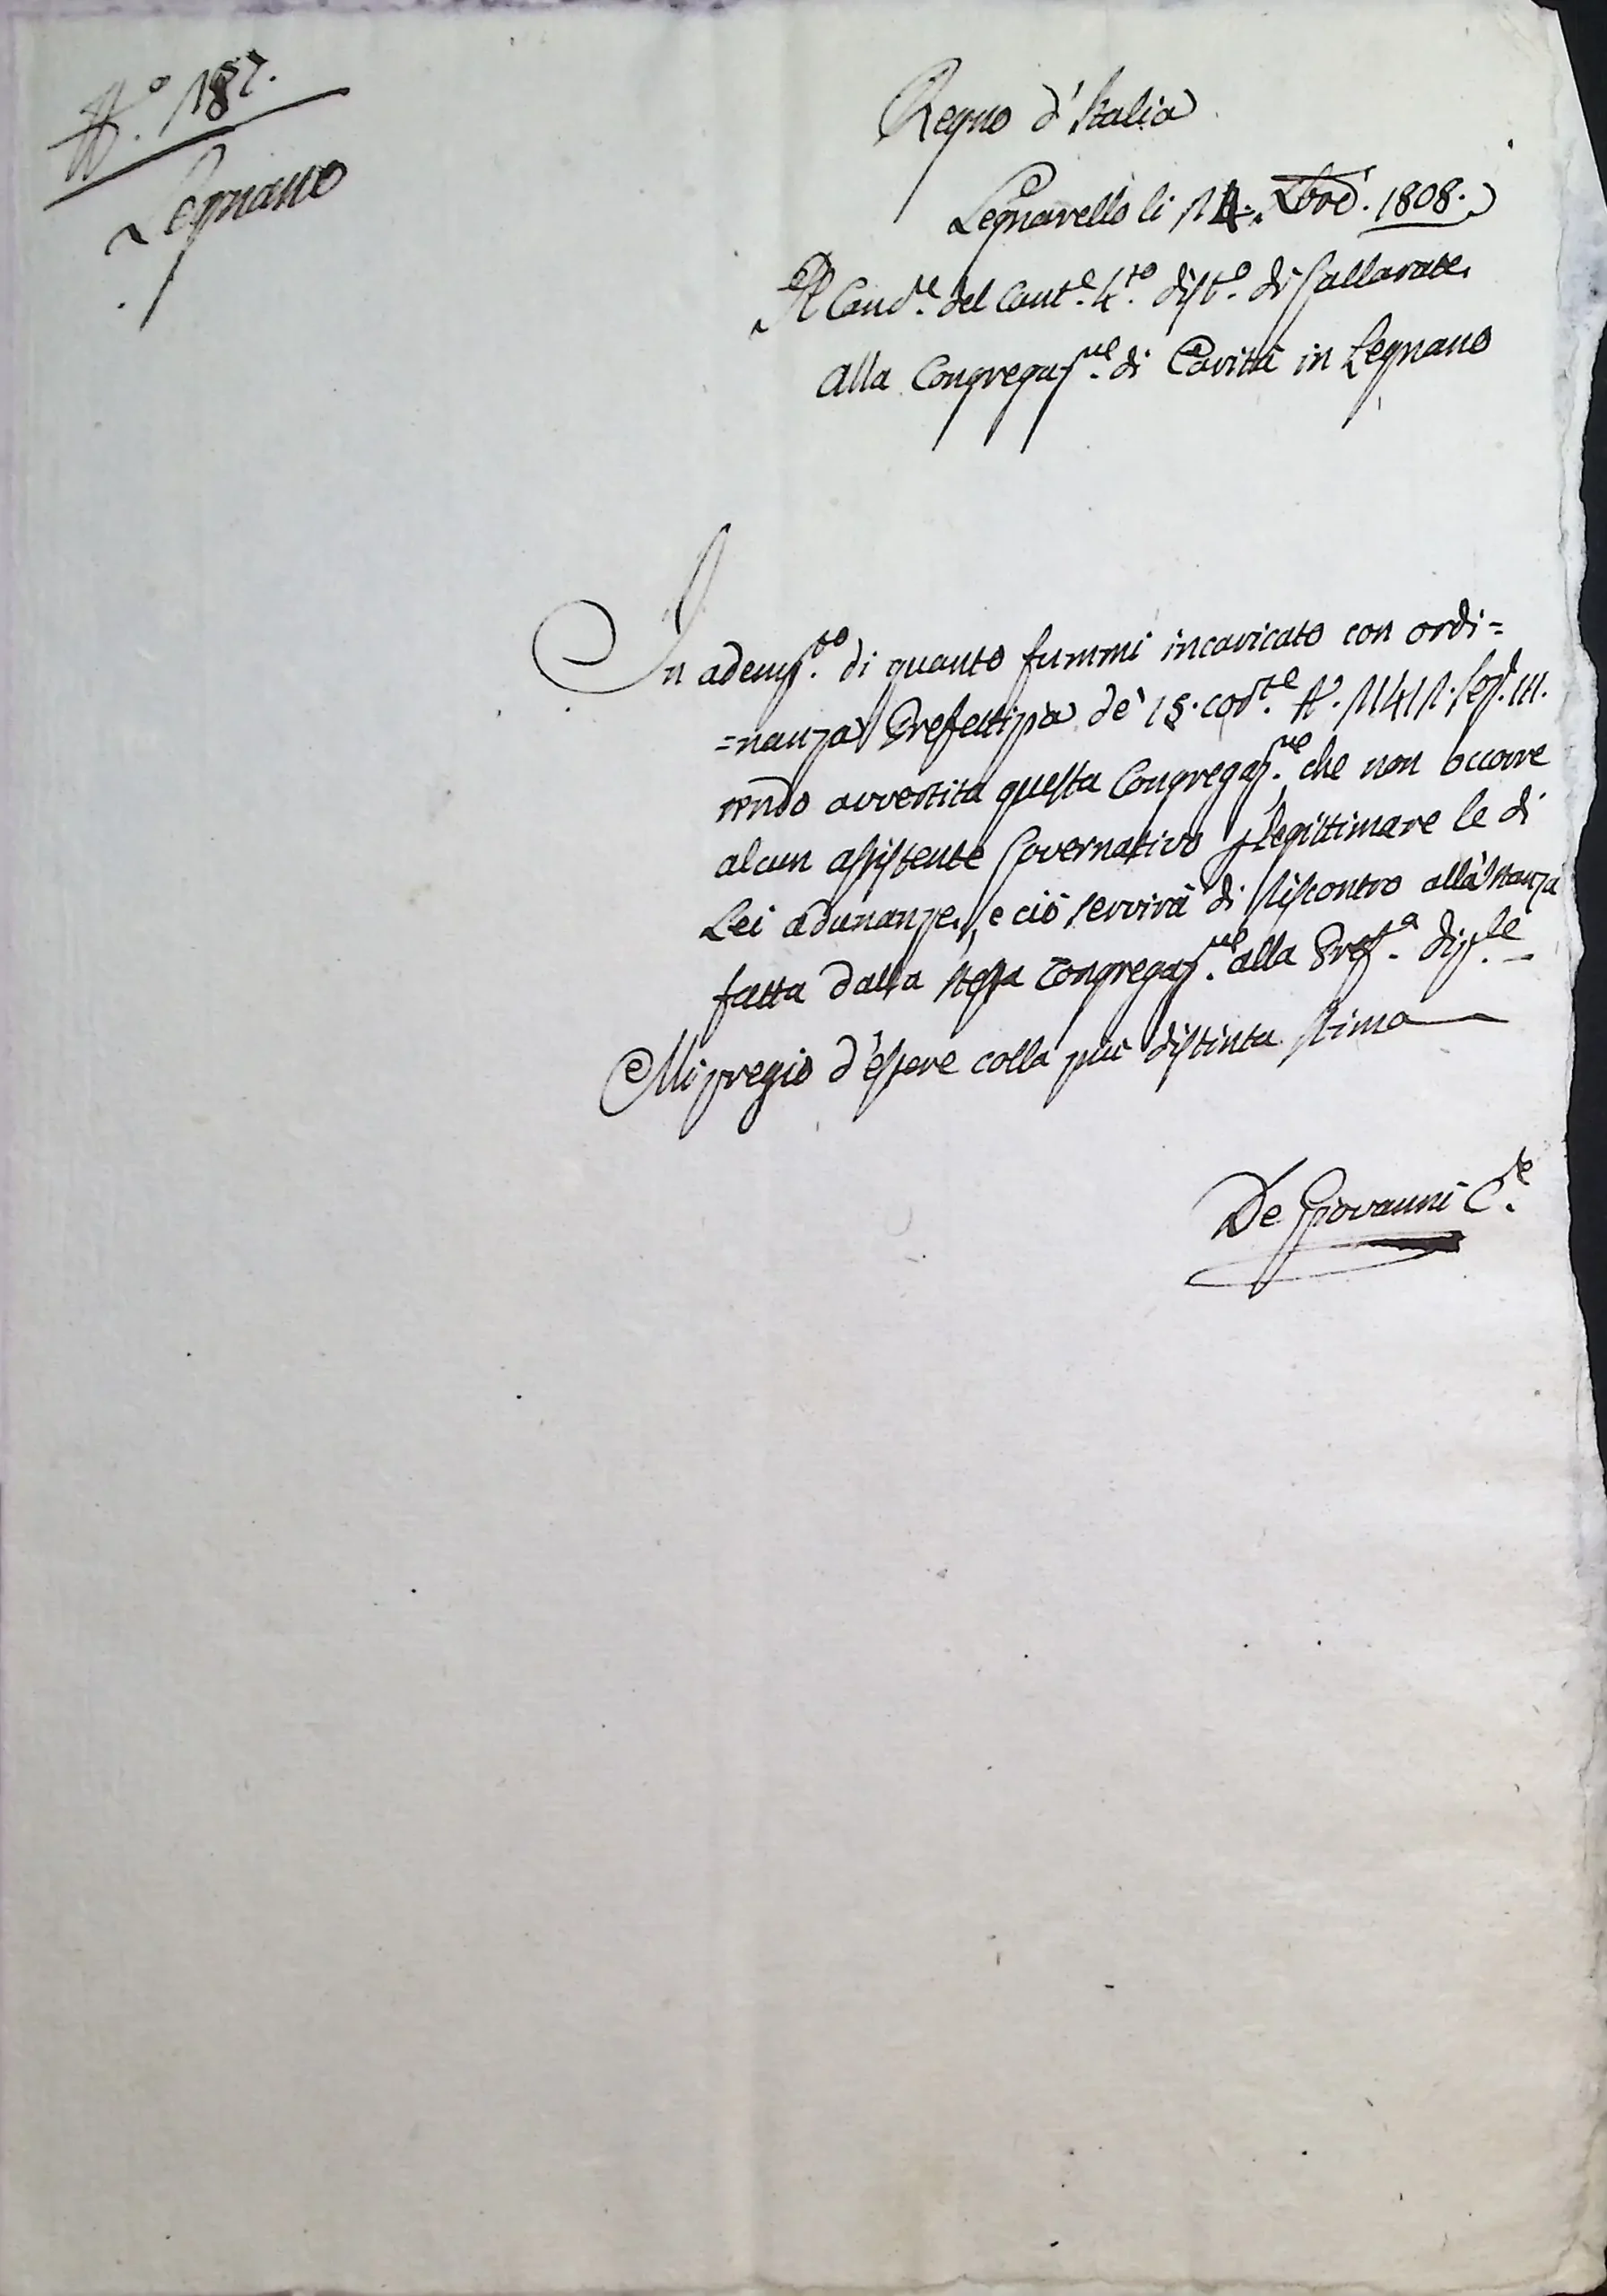 N.º 187.
Legnano
Regno d'Italia
Legnarello li 14. Xbre. 1808.
Il Canc.e del Cant.e 4.to dist.o di Gallarate
Alla Congregaz.ne di Carità in Legnano
In ademp.to di quanto fummi incaricato con ordi=
=nanza Prefettizia de' 15. cor.te N. 11411. Sez. III.
rendo avvertita questa Congregaz.ne che non occorre
alcun assistente Governativo p legittimare le di
Lei adunanze, e ciò servirà di riscontro all'istanza
fatta dalla stessa Congregaz.ne alla Pref.a Dip.le
Mi pregio d'essere colla più distinta stima
De Giovanni C.e